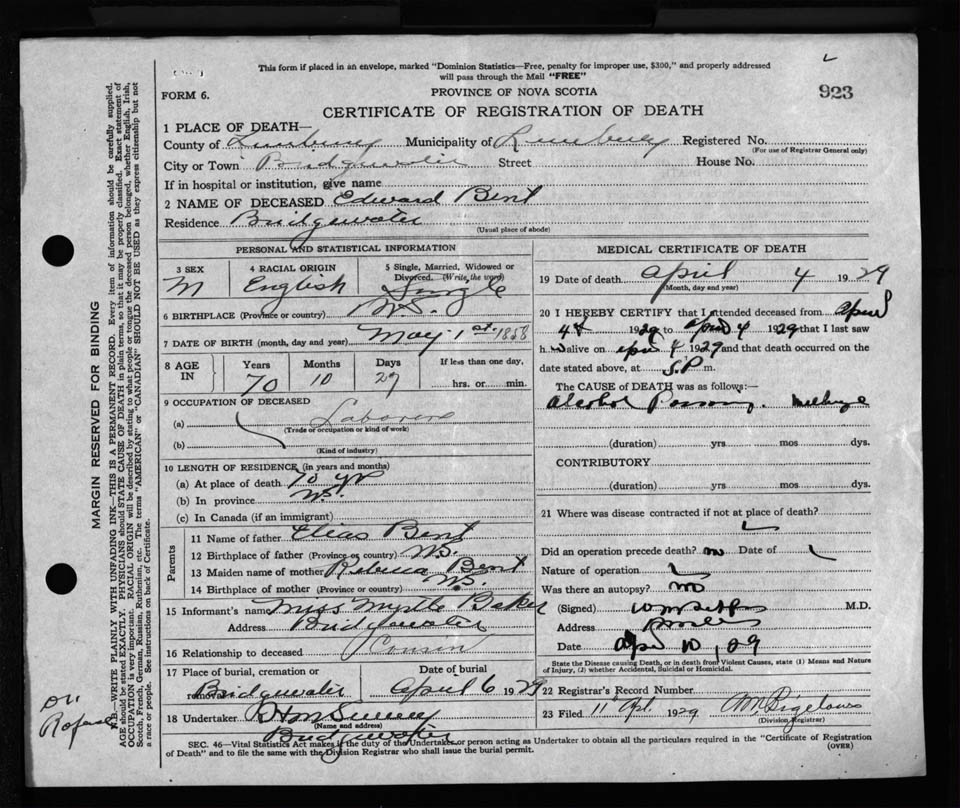 This form if placed in an envelope, marked "Dominion Statistics—Free, penalty for improper use, $300," and properly addressed
will pass through the Mail "FREE"
FORM 6.
PROVINCE OF NOVA SCOTIA
923
CERTIFICATE OF REGISTRATION OF DEATH
1 PLACE OF DEATH—
County of Lunenburg Municipality of Lunenburg Registered No.
(For use of Registrar General only)
City or Town Bridgewater Street House No.
If in hospital or institution, give name
2 NAME OF DECEASED Edward Bent
Residence Bridgewater
(Usual place of abode)
PERSONAL AND STATISTICAL INFORMATION
3 SEX 4 RACIAL ORIGIN 5 Single, Married, Widowed or
Divorced. (Write the word)
M English Single
6 BIRTHPLACE (Province or country) N.S.
7 DATE OF BIRTH (month, day and year) May 1st. 1858
8 AGE IN Years Months Days If less than one day,
70 10 27 hrs. or min.
9 OCCUPATION OF DECEASED
(a) Laborer
(Trade or occupation or kind of work)
(b)
(Kind of industry)
10 LENGTH OF RESIDENCE (in years and months)
(a) At place of death 70 yr
(b) In province N.S.
(c) In Canada (if an immigrant)
Parents
11 Name of father Elias Bent
12 Birthplace of father (Province or country) N.S.
13 Maiden name of mother Rebecca Bent
14 Birthplace of mother (Province or country) N.S.
15 Informant's name Miss Myrtle Baker
Address Bridgewater
16 Relationship to deceased Cousin
17 Place of burial, cremation or removal Date of burial
Bridgewater April 6 1929
18 Undertaker
(Name and address)
Bridgewater
MEDICAL CERTIFICATE OF DEATH
19 Date of death April 4 1929
(Month, day and year)
20 I HEREBY CERTIFY that I attended deceased from April
4th 1929 to April 4 1929 that I last saw
h alive on April 4 1929 and that death occurred on the
date stated above, at 5.P. m.
The CAUSE of DEATH was as follows:—
Alcohol Poisoning.
(duration) yrs mos dys.
CONTRIBUTORY
(duration) yrs mos dys.
21 Where was disease contracted if not at place of death?
Did an operation precede death? no Date of
Nature of operation
Was there an autopsy? no
(Signed) M.D.
Address
Date Apr 10, 29
State the Disease causing Death, or in death from Violent Causes, state (1) Means and Nature
of Injury, (2) whether Accidental, Suicidal or Homicidal.
22 Registrar's Record Number
23 Filed 11 Apl. 1929 Bigelow
(Division Registrar)
SEC. 46—Vital Statistics Act makes it the duty of the Undertaker or person acting as Undertaker to obtain all the particulars required in the "Certificate of Registration
of Death" and to file the same with the Division Registrar who shall issue the burial permit.
(OVER)
MARGIN RESERVED FOR BINDING
N.B.—WRITE PLAINLY WITH UNFADING INK—THIS IS A PERMANENT RECORD. Every item of information should be carefully supplied.
AGE should be stated EXACTLY. PHYSICIANS should STATE CAUSE OF DEATH in plain terms, so that it may be properly classified. Exact statement of
OCCUPATION is very important. RACIAL ORIGIN will be described by stating to what people or tongue the deceased person belonged, whether English, Irish,
Scotch, French, German, Russian, Ruthenian, etc. The terms "AMERICAN" or "CANADIAN" SHOULD NOT BE USED as they express citizenship but not
a race or people. See instructions on back of Certificate.